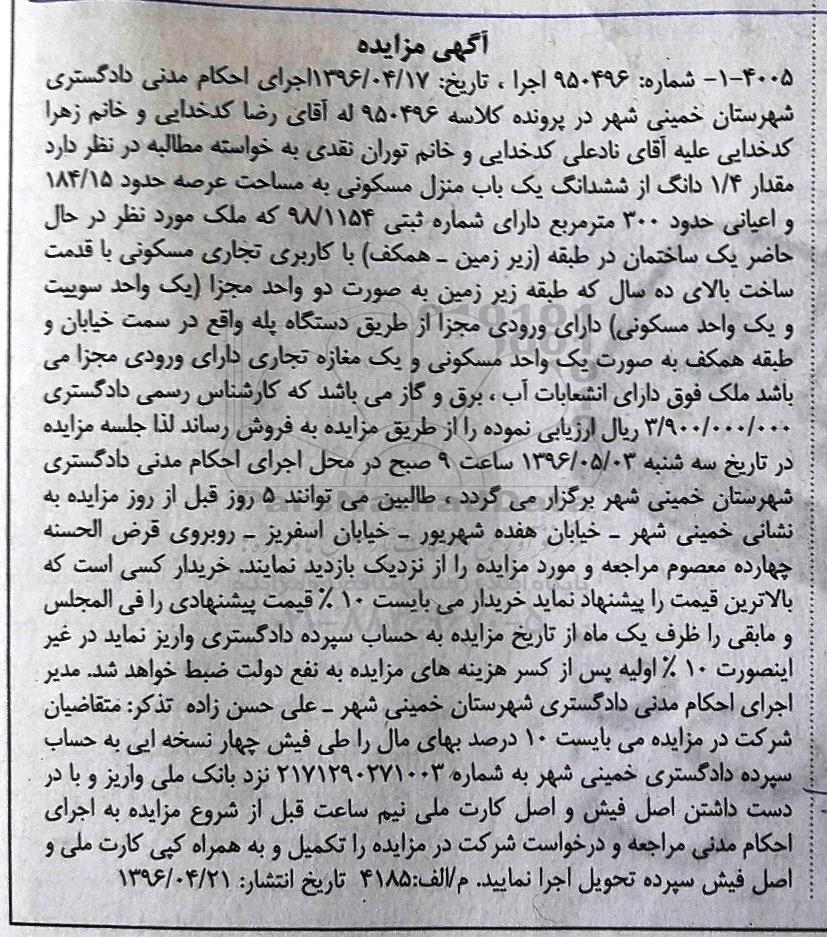 آگهی مزایده
۱-۴۰۰۵- شماره: ۹۵۰۴۹۶ اجرا ، تاریخ: ۱۳۹۶/۰۴/۱۷اجرای احکام مدنی دادگستری
شهرستان خمینی شهر در پرونده کلاسه ۹۵۰۴۹۶ له آقای رضا کدخدایی و خانم زهرا
کدخدایی علیه آقای نادعلی کدخدایی و خانم توران نقدی به خواسته مطالبه در نظر دارد
مقدار ۱/۴ دانگ از ششدانگ یک باب منزل مسکونی به مساحت عرصه حدود ۱۸۴/۱۵
و اعیانی حدود ۳۰۰ مترمربع دارای شماره ثبتی ۹۸/۱۱۵۴ که ملک مورد نظر در حال
حاضر یک ساختمان در طبقه (زیر زمین ـ همکف) با کاربری تجاری مسکونی با قدمت
ساخت بالای ده سال که طبقه زیر زمین به صورت دو واحد مجزا (یک واحد سوییت
و یک واحد مسکونی) دارای ورودی مجزا از طریق دستگاه پله واقع در سمت خیابان و
طبقه همکف به صورت یک واحد مسکونی و یک مغازه تجاری دارای ورودی مجزا می
باشد ملک فوق دارای انشعابات آب ، برق و گاز می باشد که کارشناس رسمی دادگستری
۳/۹۰۰/۰۰۰/۰۰۰ ریال ارزیابی نموده را از طریق مزایده به فروش رساند لذا جلسه مزایده
در تاریخ سه شنبه ۱۳۹۶/۰۵/۰۳ ساعت ۹ صبح در محل اجرای احکام مدنی دادگستری
شهرستان خمینی شهر برگزار می گردد ، طالبین می توانند ۵ روز قبل از روز مزایده به
نشانی خمینی شهر ـ خیابان هفده شهریور ـ خیابان اسفریز ـ روبروی قرض الحسنه
چهارده معصوم مراجعه و مورد مزایده را از نزدیک بازدید نمایند. خریدار کسی است که
بالاترین قیمت را پیشنهاد نماید خریدار می بایست ۱۰ ٪ قیمت پیشنهادی را فی المجلس
و مابقی را ظرف یک ماه از تاریخ مزایده به حساب سپرده دادگستری واریز نماید در غیر
اینصورت ۱۰ ٪ اولیه پس از کسر هزینه های مزایده به نفع دولت ضبط خواهد شد. مدیر
اجرای احکام مدنی دادگستری شهرستان خمینی شهر ـ علی حسن زاده تذکر: متقاضیان
شرکت در مزایده می بایست ۱۰ درصد بهای مال را طی فیش چهار نسخه ایی به حساب
سپرده دادگستری خمینی شهر به شماره ۲۱۷۱۲۹۰۲۷۱۰۰۳ نزد بانک ملی واریز و با در
دست داشتن اصل فیش و اصل کارت ملی نیم ساعت قبل از شروع مزایده به اجرای
احکام مدنی مراجعه و درخواست شرکت در مزایده را تکمیل و به همراه کپی کارت ملی و
اصل فیش سپرده تحویل اجرا نمایید. م/الف:۴۱۸۵ تاریخ انتشار: ۱۳۹۶/۰۴/۲۱